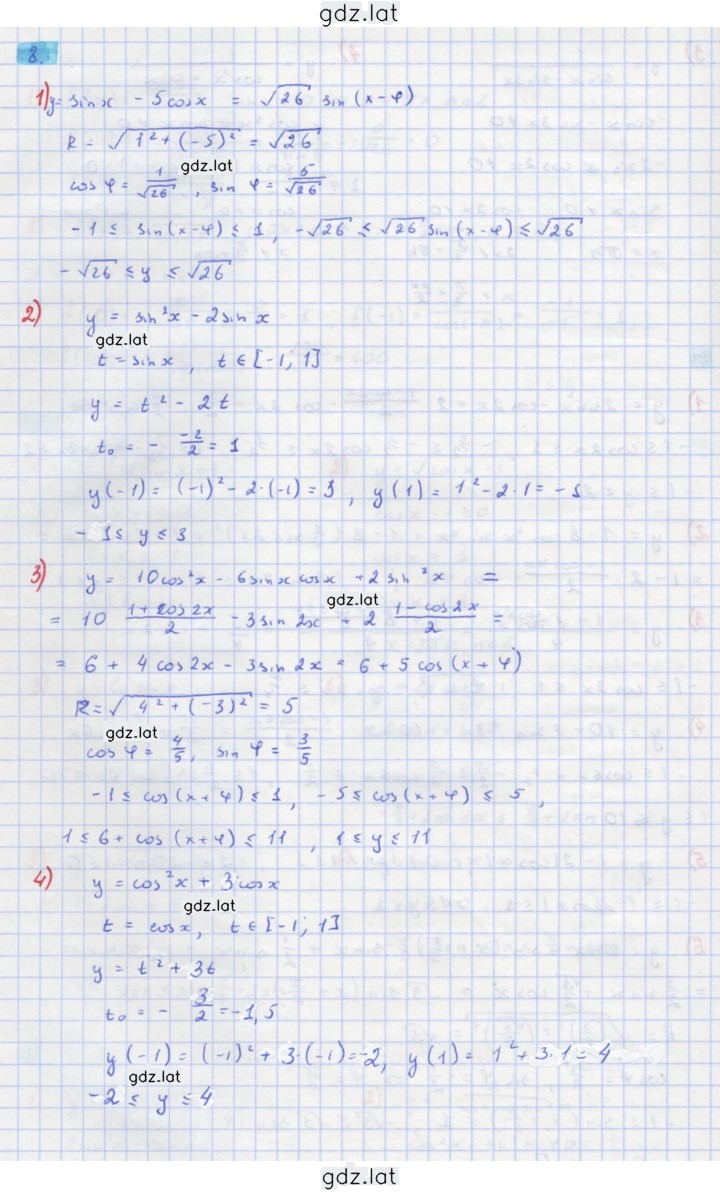 gdz.lat
8.
1) y = sin x - 5 cos x = √26 sin (x - φ)
R = √(1² + (-5)²) = √26
gdz.lat
cos φ = 1/√26 , sin φ = 5/√26
-1 ≤ sin (x - φ) ≤ 1, -√26 ≤ √26 sin (x - φ) ≤ √26
-√26 ≤ y ≤ √26
2) y = sin²x - 2 sin x
gdz.lat
t = sin x , t ∈ [-1; 1]
y = t² - 2t
t₀ = - -2/2 = 1
y(-1) = (-1)² - 2·(-1) = 3 , y(1) = 1² - 2·1 = -1
-1 ≤ y ≤ 3
3) y = 10 cos²x - 6 sin x cos x + 2 sin²x =
gdz.lat
= 10 (1 + cos 2x)/2 - 3 sin 2x + 2 (1 - cos 2x)/2 =
= 6 + 4 cos 2x - 3 sin 2x = 6 + 5 cos (x + φ)
R = √(4² + (-3)²) = 5
gdz.lat
cos φ = 4/5, sin φ = 3/5
-1 ≤ cos (x + φ) ≤ 1, -5 ≤ cos (x + φ) ≤ 5 ,
1 ≤ 6 + cos (x + φ) ≤ 11 , 1 ≤ y ≤ 11
4) y = cos²x + 3 cos x
gdz.lat
t = cos x, t ∈ [-1; 1]
y = t² + 3t
t₀ = - 3/2 = -1,5
y(-1) = (-1)² + 3·(-1) = -2, y(1) = 1² + 3·1 = 4
gdz.lat
-2 ≤ y ≤ 4
gdz.lat